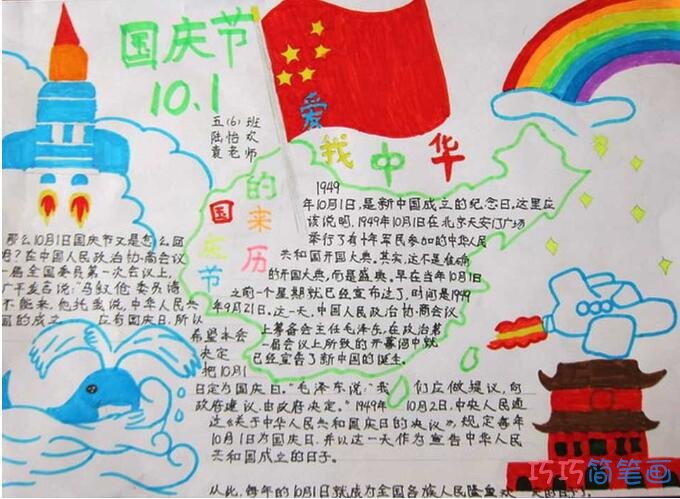 国庆节
10.1
五(6)班
陆怡欢
袁老师
爱我中华
国庆节
的来历
1949
年10月1日,是新中国成立的纪念日。这里应
该说明,1949年10月1日在北京天安门广场
举行了有十年军民参加的中华人民
共和国开国大典。其实,这不是准确
的开国大典,而是盛典。早在当年10月1日
之前一个星期就已经宣布过了,时间是1949
年9月21日。这一天,中国人民政治协商会议
上筹备会主任毛泽东,在政治第
一届会议上所致的开幕语中就
已经宣告了新中国的诞生。
那么10月1日国庆节又是怎么回
在中国人民政治协商会议
一届全国委员第一次会议上,
说:"马叙伦委员请
不能来,他托我说,中华人民共
的成立 应有国庆日,所以
希望本会
决定
把10月1
日定为国庆日。"毛泽东说:"我们应做提议,向
政府建议,由政府决定。"1949年10月2日,中央人民通
过《关于中华人民共和国庆日的决议》,规定每年
10月1日为国庆日,并以这一天作为宣告中华人民
共和国成立的日子。
从此,每年的10月1日就成为全国各族人民隆重欢
巧巧简笔画